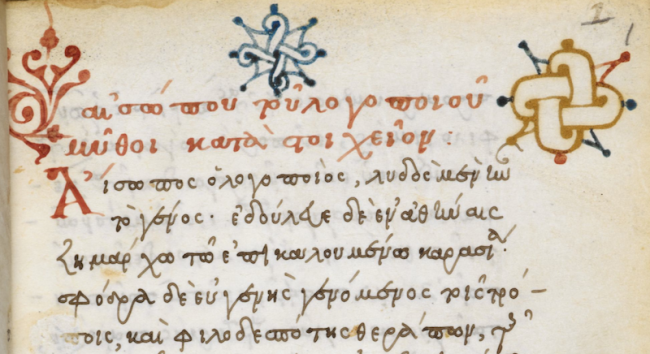 αἰσώπου τοῦ λογοποιοῦ
μῦθοι κατὰ στοιχεῖον:
Αἴσωπος ὁ λογοποιὸς, λυδὸς μὲν ἦν
τὸ γένος· ἐδούλευε δὲ ἐν ἀθήναις
ζημάρχω τῶ ἐπικαλουμένω καρασία·
σφόδρα δὲ εὐγενὴς γενόμενος τοῖς τρό-
ποις, καὶ φιλοδεσποτης θεράπων,